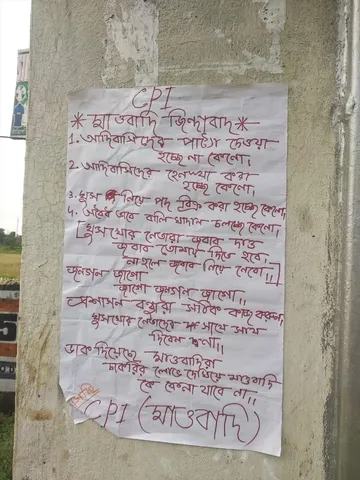 CPI
* মাওবাদি জিন্দাবাদ *
1. আদিবাসিদের পাট্টা দেওয়া
হচ্ছে না কেনো,
2. আদিবাসিদের হেনস্থা করা
হচ্ছে কেনো,
3. ঘুস নিয়ে পদ বিক্রি করা হচ্ছে কেনো,
4. অবৈধ ভাবে বালি খাদান চলছে কেনো,
[ঘুস খোর নেতারা জবাব দাও
জবাব তোমায় দিতে হবে,
না হলে জবাব নিয়ে নেবো!!]
জনগন জাগো
জাগো জনগন জাগো!!
প্রশাসন বন্ধুরা সঠিক কাজ করুন,
ঘুসখোর নেতাদের সাথে সাথ
দিবেন না!!
ডাক দিয়েছে মাওবাদিরা
চাকরির লোভ দেখিয়ে মাওবাদি
কে কেনা যাবে না!!
CPI (মাওবাদি)